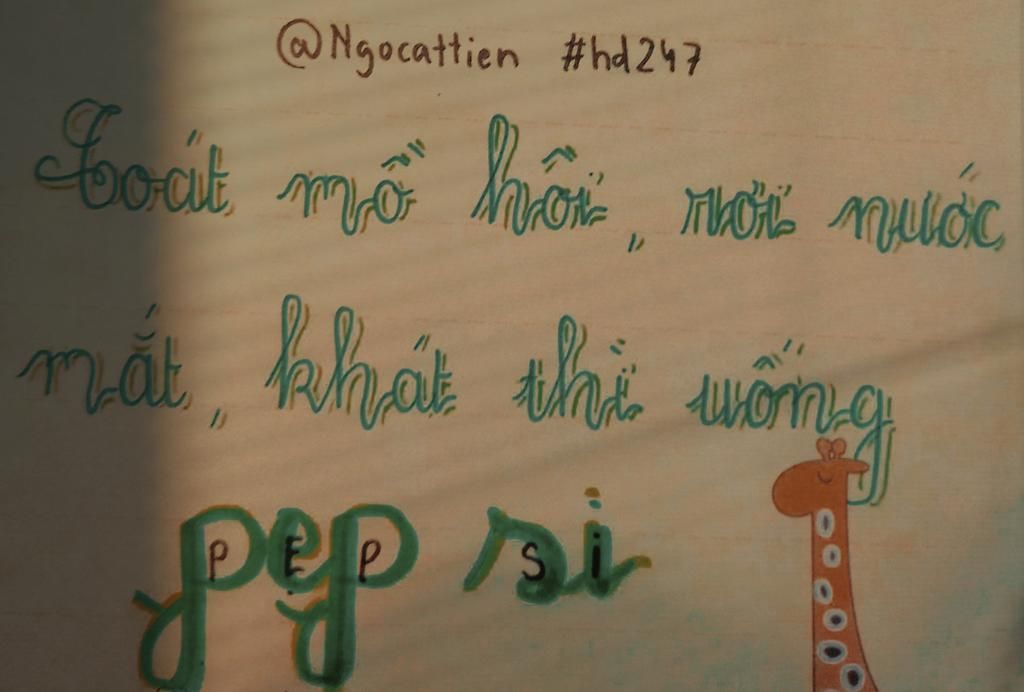 @Ngocattien #hd247
Toát mồ hôi, rơi nước
mắt, khát thì uống
pẹp si
P E P S i